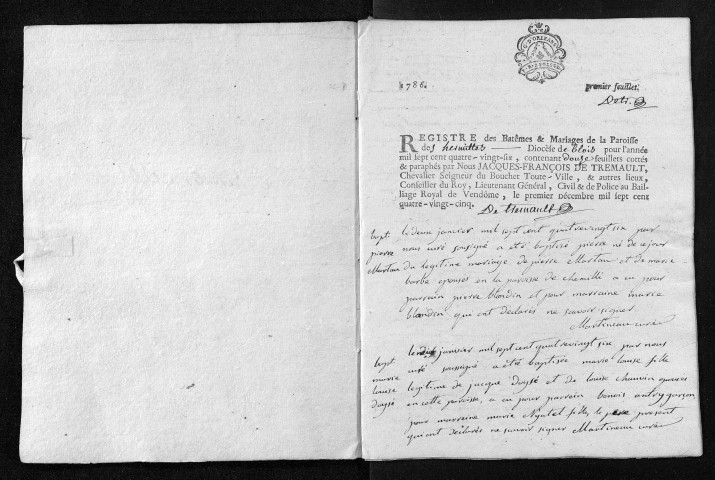 G. D'ORLEANS
1786.
premier feuillet.
REGISTRE des Batêmes & Mariages de la Paroisse
des hermittes Diocèse de Blois pour l'année
mil sept cent quatre-vingt-six, contenant douse feuillets cottés
& paraphés par Nous JACQUES-FRANÇOIS DE TREMAULT,
Chevalier Seigneur du Bouchet Toute-Ville, & autres lieux,
Conseiller du Roy, Lieutenant Général, Civil & de Police au Bail-
liage Royal de Vendôme, le premier décembre mil sept cent
quatre-vingt-cinq. De Tremault
bapt. le deux janvier mil sept cent quatrevingt six par
pierre nous curé sousigné a été baptisé pierre né de ce jour
Martau du legitime mariage de pierre Martau et de marie
barbe epouses en la paroisse de chemillé a eu pour
parrain pierre blondin et pour marraine marie
blondin qui ont déclarés ne savoir signer
Martineau curé
bapt. le janvier mil sept cent quatrevingt six par nous
marie curé sousigné a été baptisée marie louise fille
louise legitime de jacque doysé et de louise chauvin epouses
doysé en cette paroisse, a eu pour parrain benois garçon
pour marraine marie fille, le pere present
qui ont déclarés ne savoir signer Martineau curé